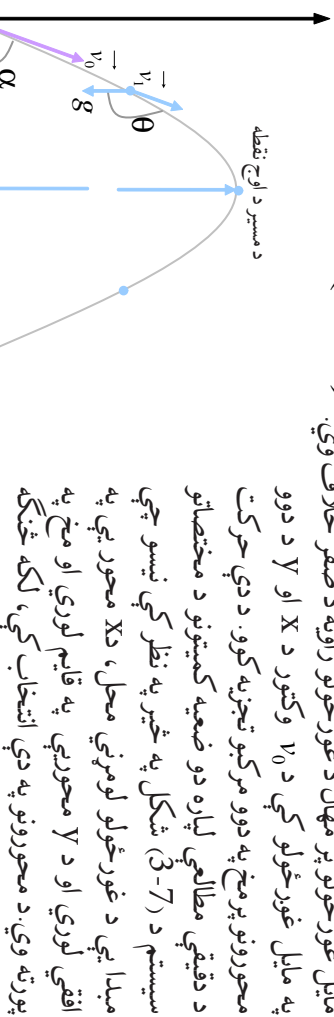 مایل غورځونو پر مهال د غورځونو زاویه د صفر خلاف وي.
په مایل غورځولو کې د v₀ وکتور د x او y د دوو
محورونو پرمخ په دوو مرکبو تجزیه کوو. د دې حرکت
د دقیقې مطالعې لپاره دو ضعیه کمیتونو د مختصاتو
سیستم د (3-7) شکل په څیر په نظر کې نیسو چې
مبدا یې د غورځولو لومړنې محل، دx محور یې په
افقي لوري او د y محوریې په قایم لوري او مخ په
پورته وي. د محورونو په دې انتخاب کې، لکه څنګه
د مسیر د اوج نقطه
v₁
θ
g
v₀
α